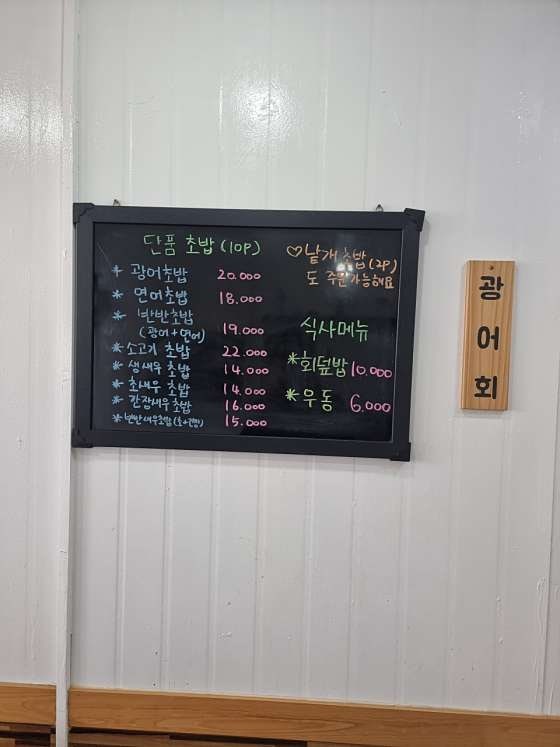 단품 초밥 (10P)
* 광어초밥 20.000
* 연어초밥 18.000
* 반반초밥
(광어+연어) 19.000
* 소고기 초밥 22.000
* 생새우 초밥 14.000
* 초새우 초밥 14.000
* 간장새우초밥 16.000
* 반반새우초밥 15.000
♡낱개 초밥(2P)
도 주문가능해요
식사메뉴
*회덮밥 10.000
*우동 6.000
광어회